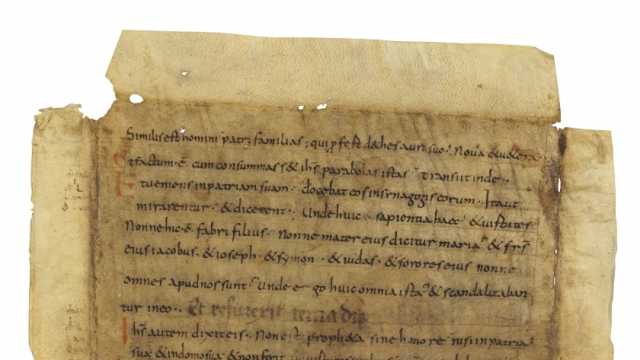 Similis est homini patri familias; qui pfert de thes auro suo. Nova & vetera
& factum e cum consummass& ihs parabolas istas transiit inde.
Et veniens in patriam suam. docebat eos in synagogis eorum. Ita ut
mirarentur & dicerent. Unde huic sapientia haec & virtutes
Nonne hic e fabri filius. Nonne mater eius dicitur maria & frs
eius iacobus. & ioseph. & symon. & iudas. & sorores eius nonne
omnes apud nos sunt. Unde ergo huic omnia ista. & scandalizaban
tur in eo. Et
Ihs autem dixit eis. Non est propheta sine honore nisi in patria
sua & in domo sua & non fecit